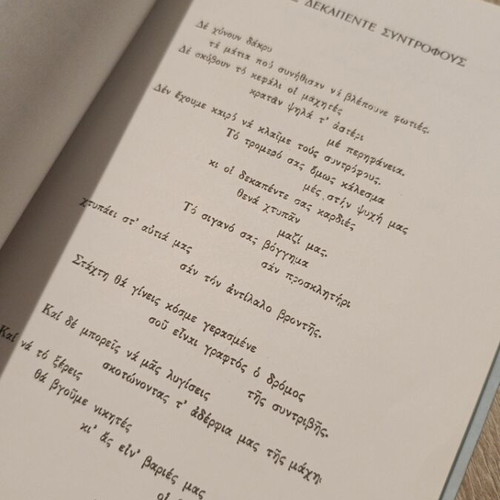 ΔΕΚΑΠΕΝΤΕ ΣΥΝΤΡΟΦΟΥΣ
Δέ χύνουν δάκρυ
τά μάτια πού συνήθισαν νά βλέπουνε φωτιές.
Δέ σκύβουν τό κεφάλι οἱ μαχητές
κρατᾶν ψηλά τ' ἀστέρι
μέ περηφάνεια.
Δέν ἔχουμε καιρό νά κλαῖμε τούς συντρόφους.
Τό τρομερό σας ὅμως κάλεσμα
μές στήν ψυχή μας
κι οἱ δεκαπέντε σας καρδιές
θενά χτυπᾶν
μαζί μας.
Τό σιγανό σας βόγγημα
σάν προσκλητήρι
χτυπάει στ' αὐτιά μας
σάν τόν ἀντίλαλο βροντῆς.
Στάχτη θά γίνεις κόσμε γερασμένε
σοῦ εἶναι γραφτός ὁ δρόμος
τῆς συντριβῆς.
Καί δέ μπορεῖς νά μᾶς λυγίσεις
σκοτώνοντας τ' ἀδέρφια μας τῆς μάχης
Καί νά τό ξέρεις
θά βγοῦμε νικητές
κι' ἄς εἶν' βαριές μας